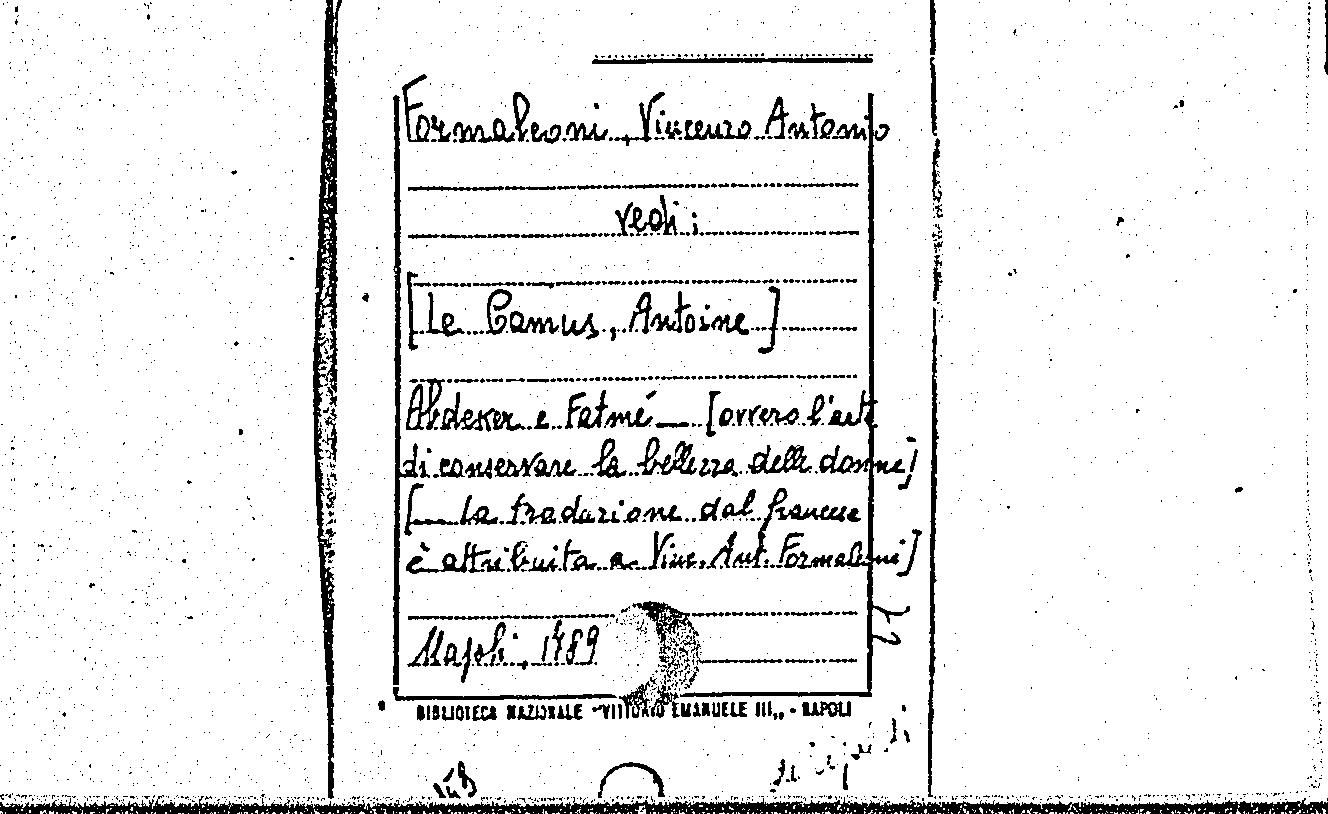 Formaleoni, Vincenzo Antonio
vedi:
[Le Camus, Antoine]
Abdeker e Fatmé — [ovvero l'arte
di conservare la bellezza delle donne]
[— La traduzione dal francese
è attribuita a Vinc. Ant. Formaleoni]
Napoli, 1789
BIBLIOTECA NAZIONALE "VITTORIO EMANUELE III„ - NAPOLI